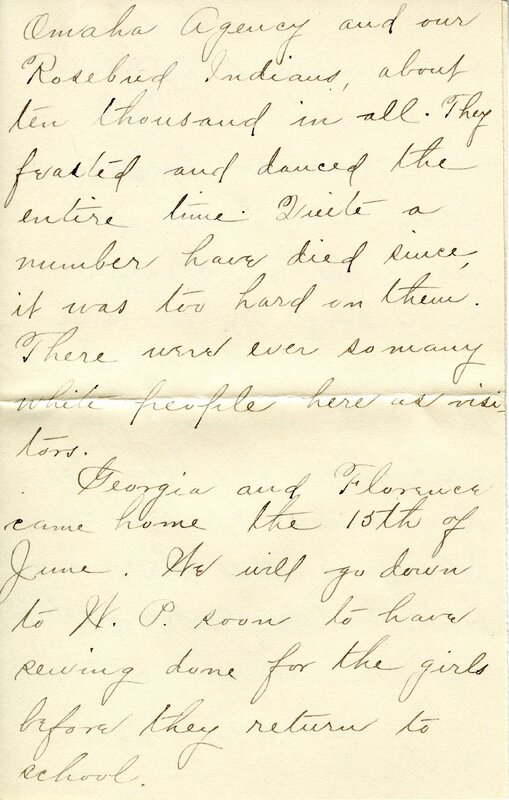 Omaha Agency and our
Rosebud Indians, about
ten thousand in all. They
feasted and danced the
entire time. Quite a
number have died since,
it was too hard on them.
There were ever somany
white people here as visi-
tors.
Georgia and Florence
came home the 15th of
June. We will go down
to N. P. soon to have
sewing done for the girls
before they return to
school.